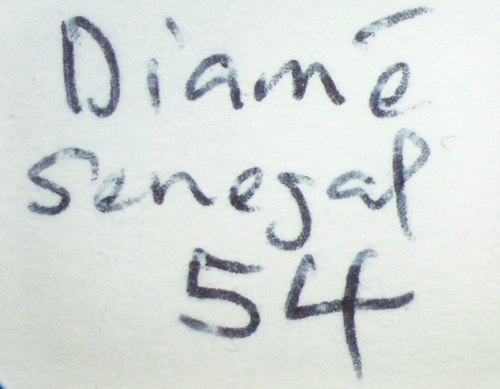 Diamé
Senegal
54